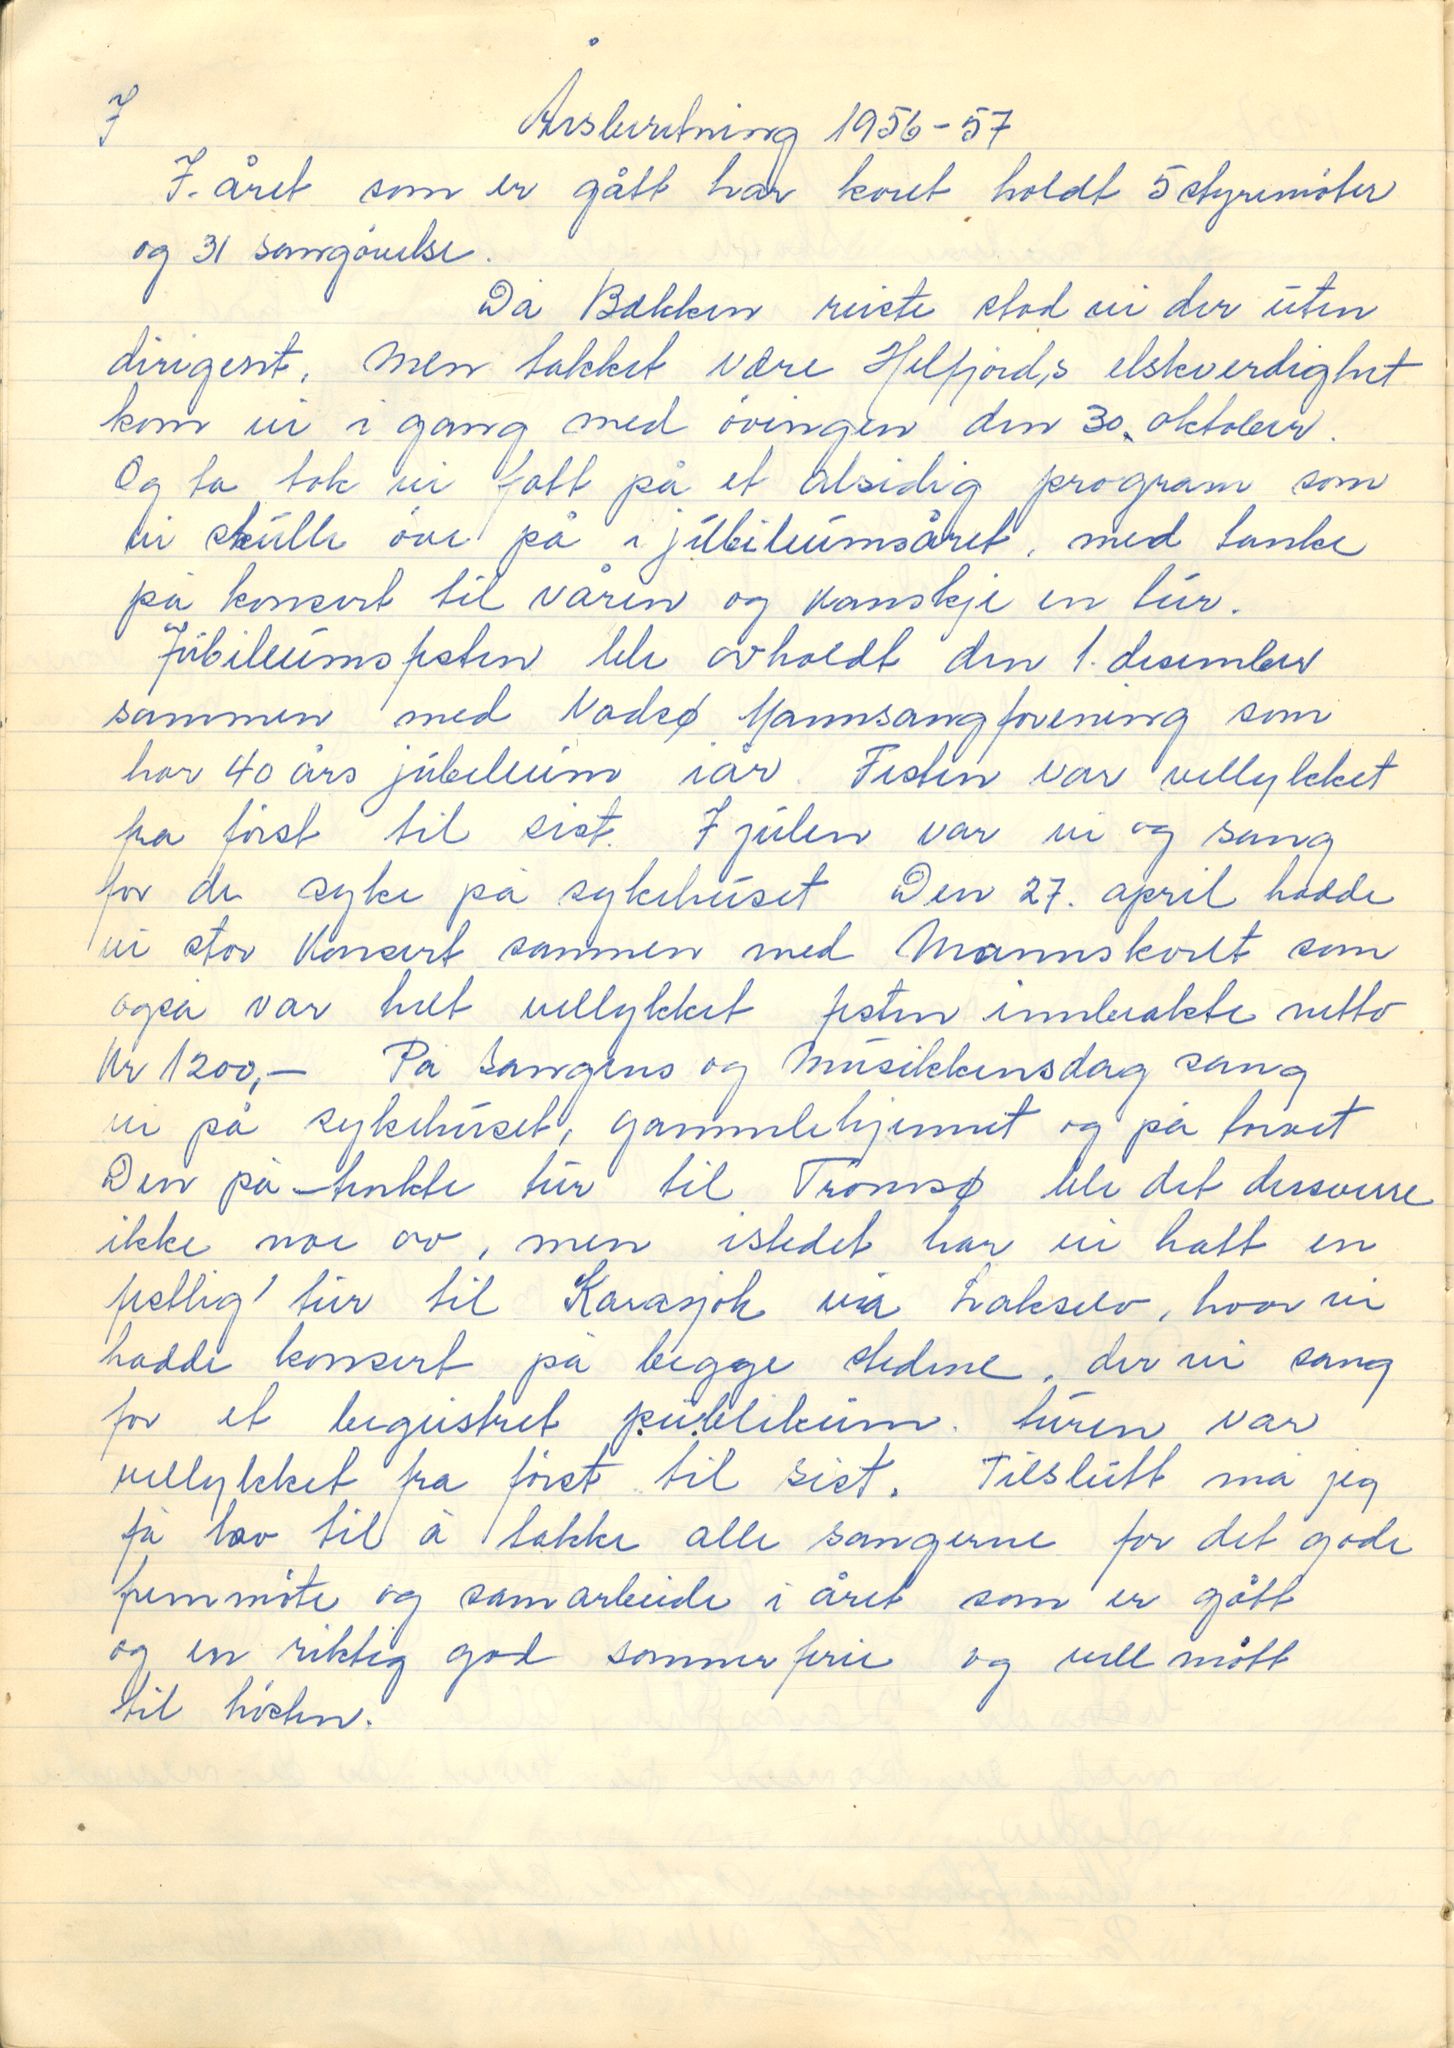 I
Årsberetning 1956-57
I. året som er gått har koret holdt 5 styremöter
og 31 sangövelse.
Da Bækken reiste stod vi der uten
dirigent, men takket være Helfjord,s elskverdighet
kom vi i gang med övingen den 30. oktober.
Og ta tok vi fatt på et alsidig program som
vi skulle öve på i jubileumsåret, med tanke
på konsert til våren og kanskje en tur.
Jubileumsfesten ble avholdt den 1. desember
sammen med Vadsø Mannsangforening som
har 40 års jubileum iår. Festen var vellykket
fra först til sist. I julen var vi og sang
for de syke på sykehuset Den 27. april hadde
vi stor konsert sammen med Mannskoret som
også var helt vellykket festen innbrakte netto
kr 1200,- På sangens og Musikkensdag sang
vi på sykehuset, gammlehjemmet og på torvet
Den på-tenkte tur til Tromsø ble det dessverre
ikke noe av, men istedet har vi hatt en
festlig! tur til Karasjok via Lakselv, hvor vi
hadde konsert på begge stedene, der vi sang
for et begeistret publikum. turen var
vellykket fra först til sist. Tilslutt må jeg
få lov til å takke alle sangerne for det gode
fremmöte og samarbeide i året som er gått
og en riktig god sommerferie og vell mött
til hösten.